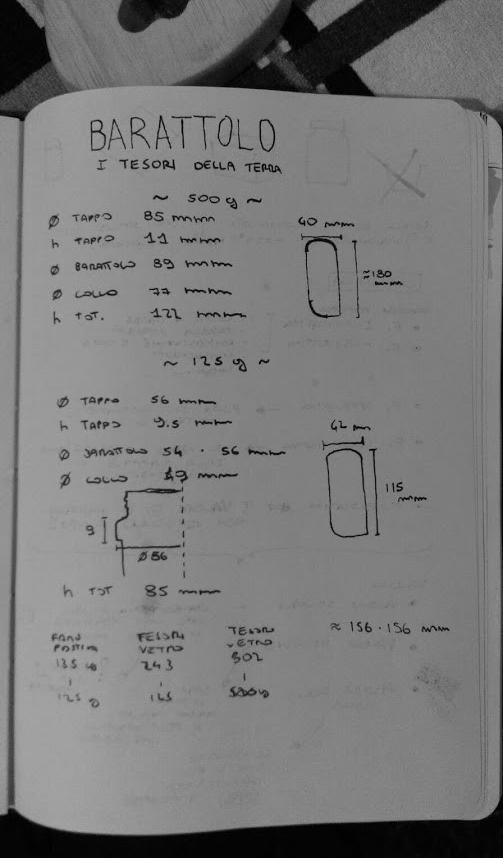 BARATTOLO
I TESORI DELLA TERRA
~ 500 g ~
Ø TAPPO 85 mm
h TAPPO 11 mm
Ø BARATTOLO 89 mm
Ø COLLO 77 mm
h TOT. 122 mm
40 mm
≈130 mm
~ 125 g ~
Ø TAPPO 56 mm
h TAPPO 9.5 mm
Ø BARATTOLO 54 · 56 mm
Ø COLLO 49 mm
42 mm
115 mm
9
Ø 56
h TOT 85 mm
≈ 156 · 156 mm
VETRO
135 g 243 302
125 g 125 500 g